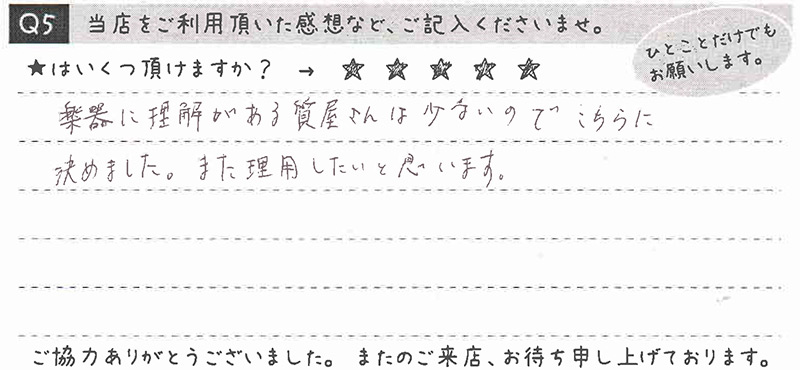 Q5 当店をご利用頂いた感想など、ご記入くださいませ。
ひとことだけでも
お願いします。
★はいくつ頂けますか？ → ☆ ☆ ☆ ☆ ☆
楽器に理解がある質屋さんは少ないので こちらに
決めました。また理用したいと思います。
ご協力ありがとうございました。 またのご来店、お待ち申し上げております。